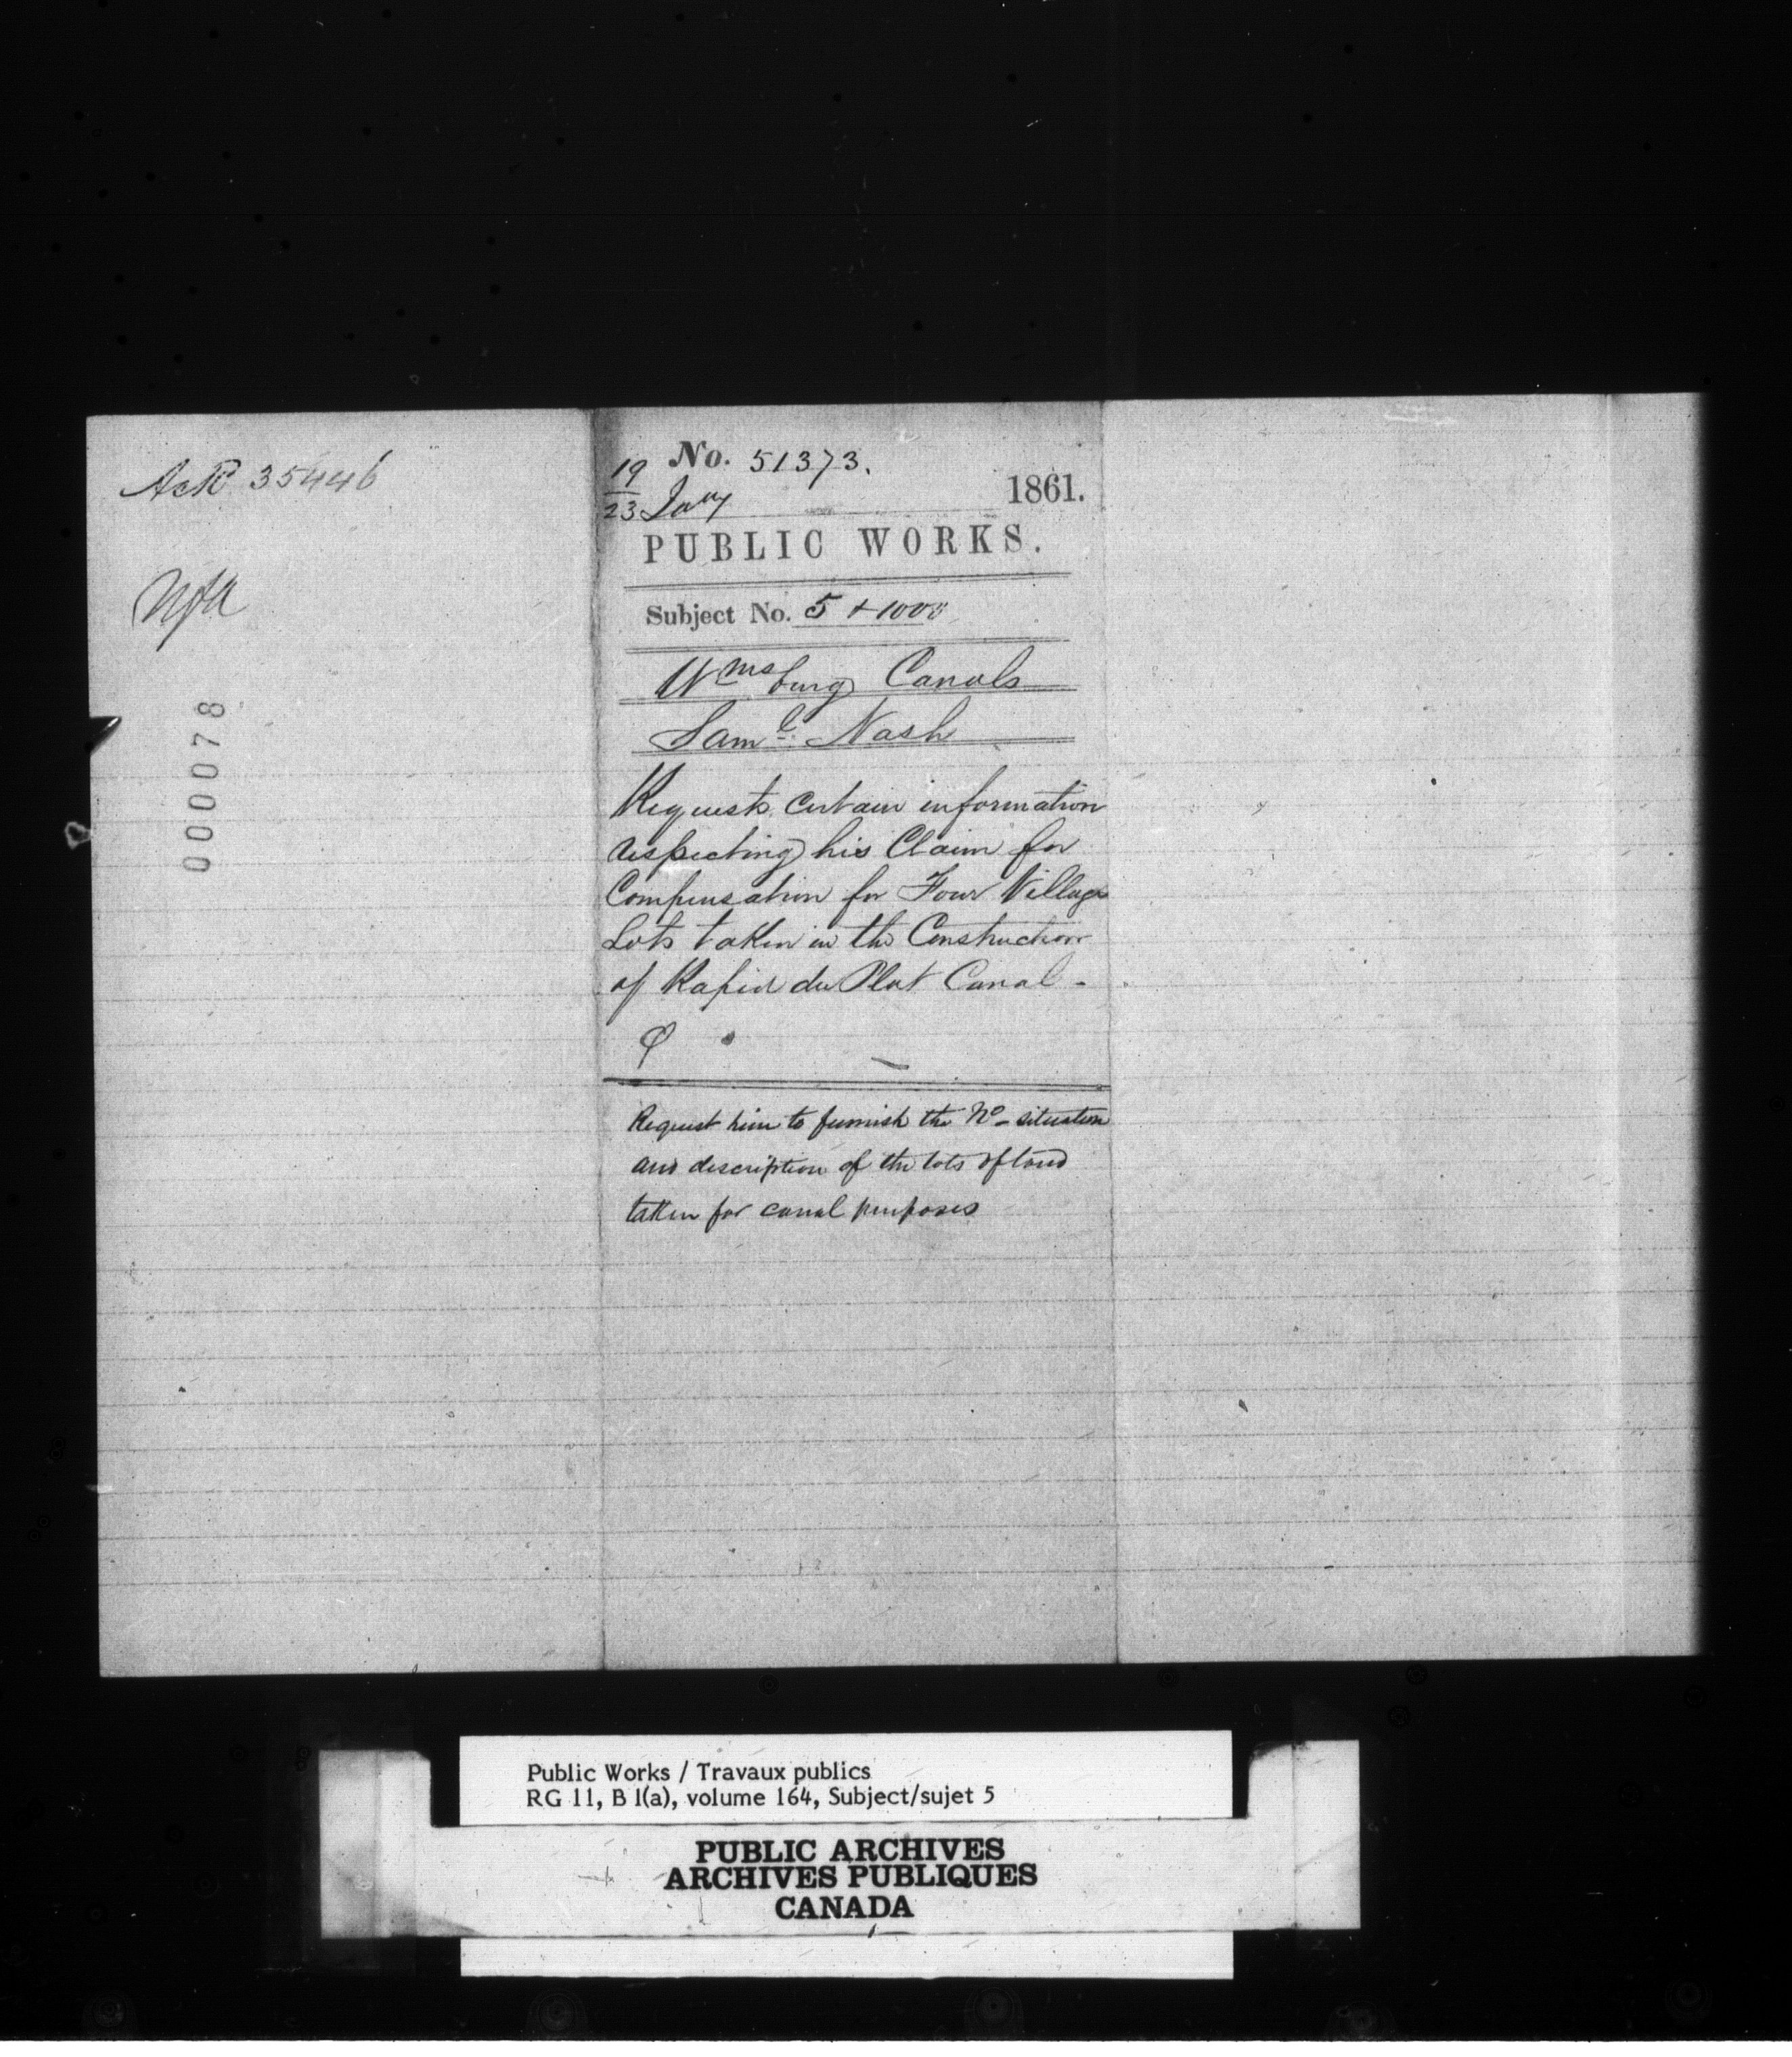 Ack 35446
000078
No. 51373.
19
23 Jany 1861.
PUBLIC WORKS.
Subject No. 5 + 1000
Wmsburg Canals
Saml. Nash
Requests certain information
respecting his Claim for
Compensation for Four Village
Lots taken in the Construction
of Rapid du Plat Canal -
Request him to furnish the No - situation
and description of the lots of land
taken for canal purposes
Public Works / Travaux publics
RG 11, B 1(a), volume 164, Subject/sujet 5
PUBLIC ARCHIVES
ARCHIVES PUBLIQUES
CANADA